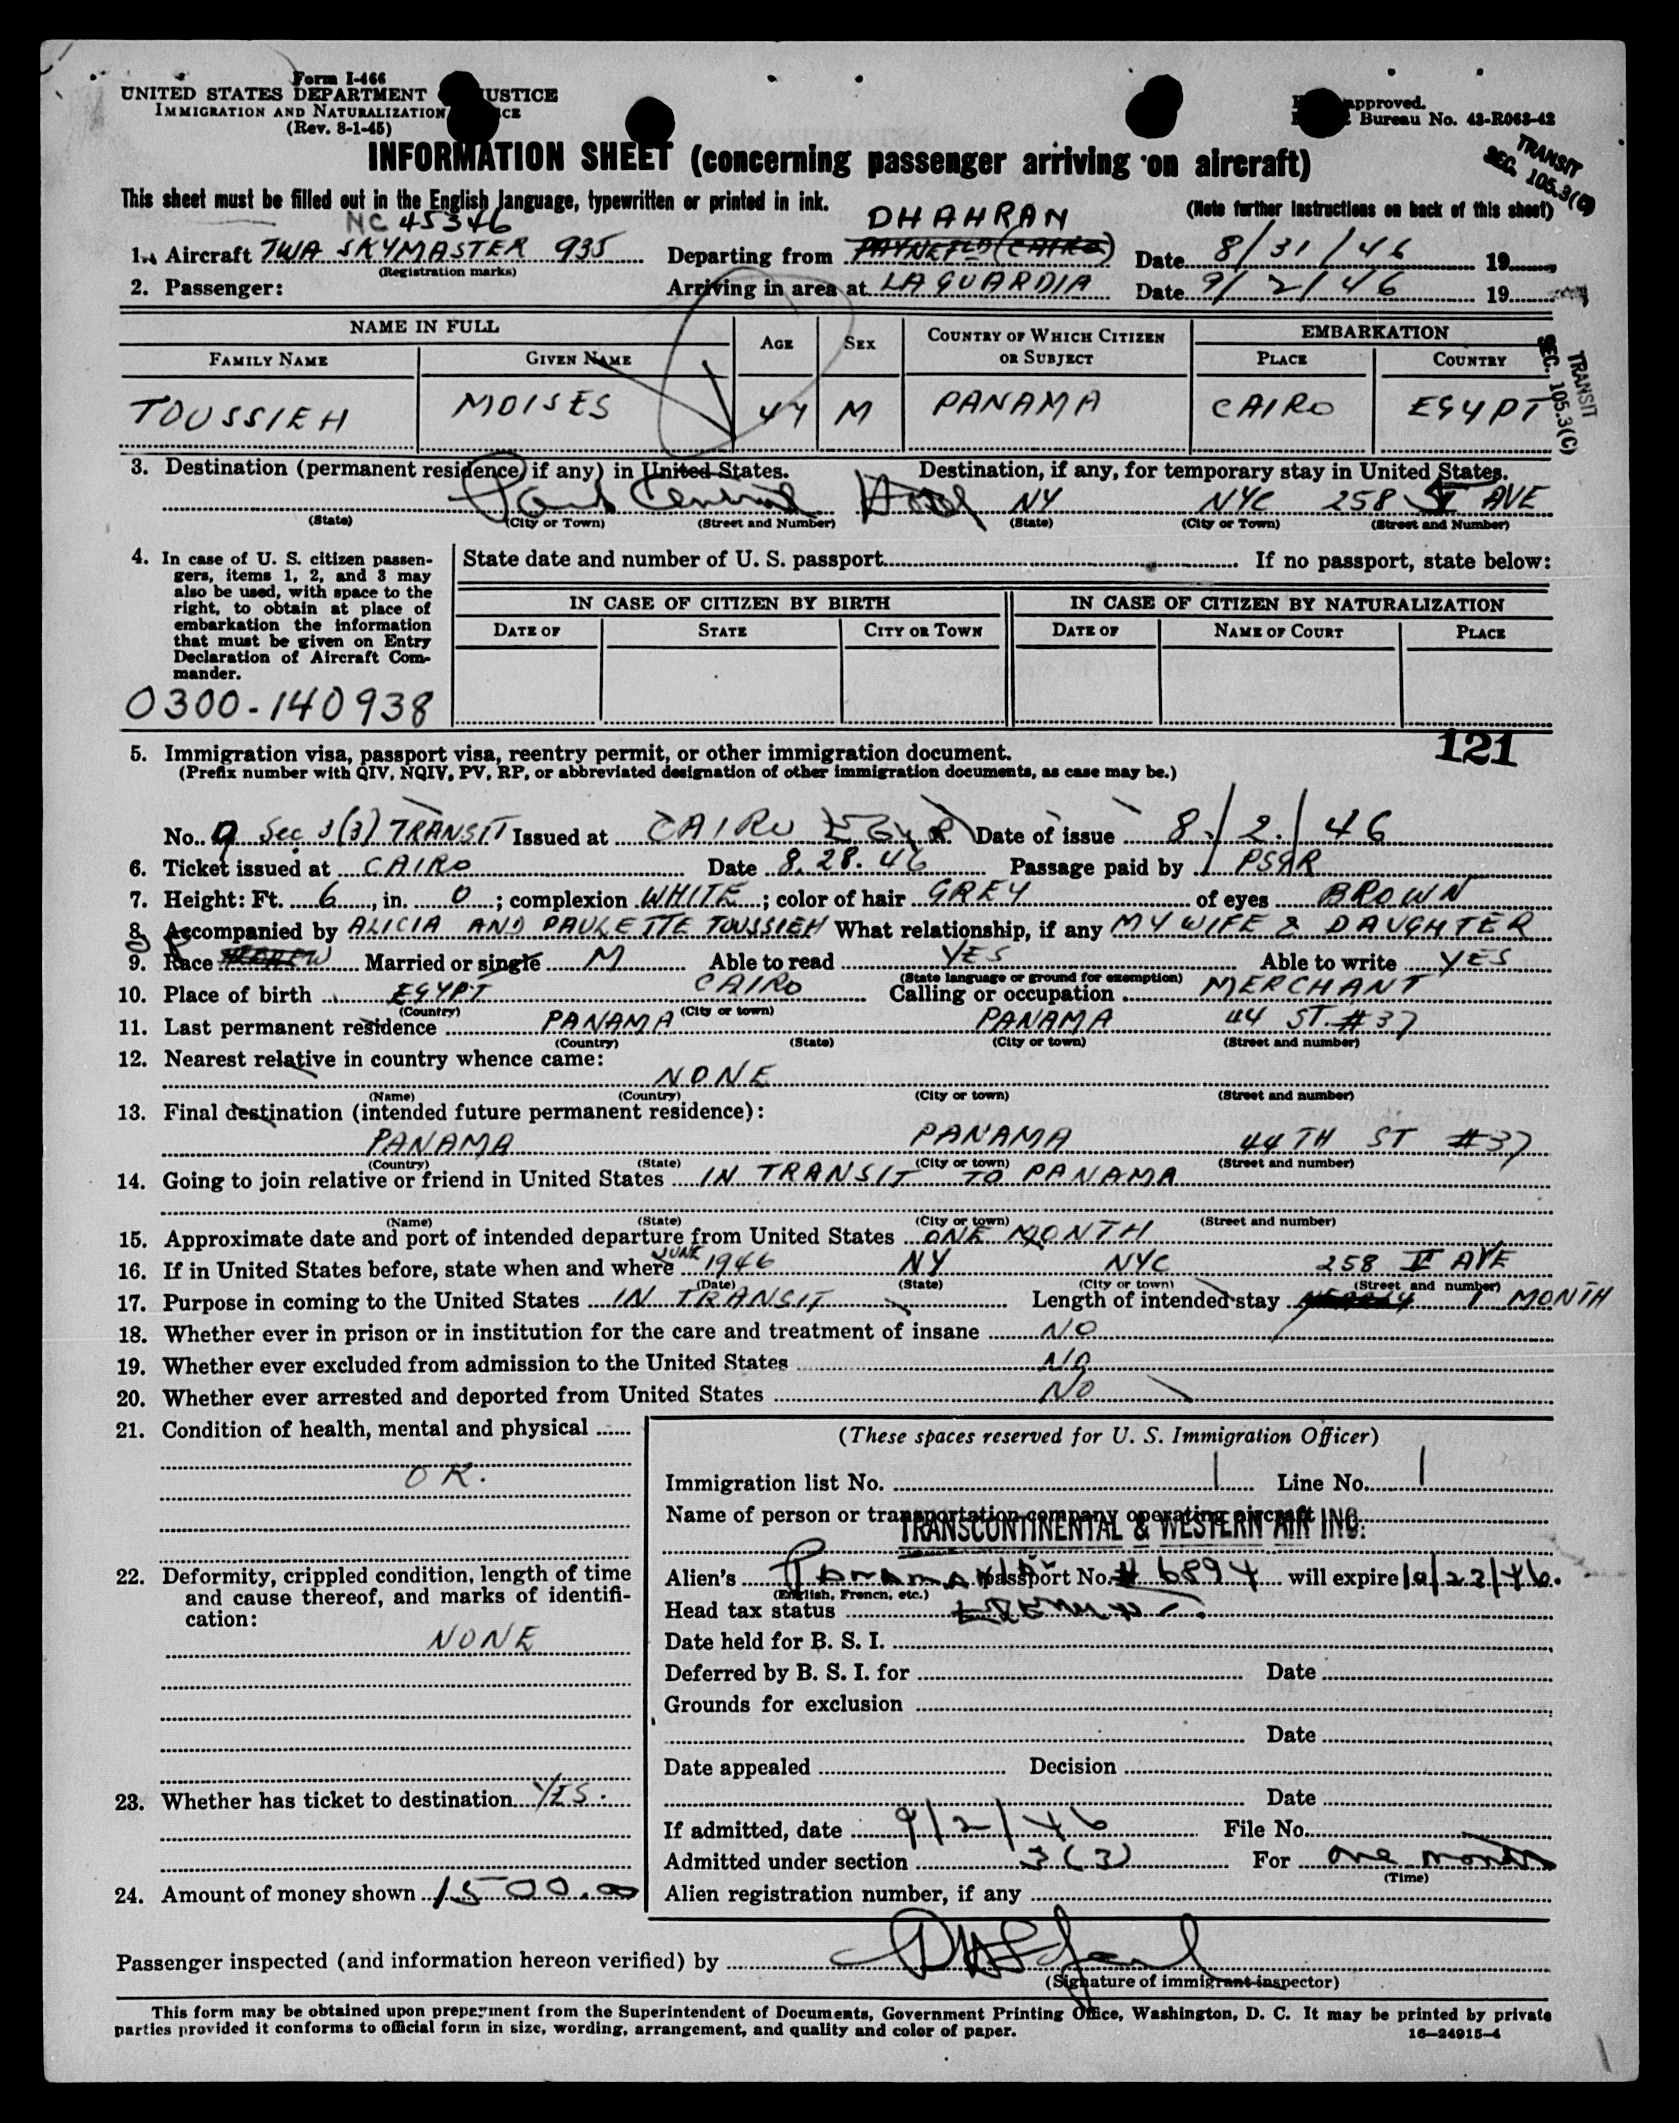 Form I-466
UNITED STATES DEPARTMENT JUSTICE
IMMIGRATION AND NATURALIZATION
(Rev. 8-1-45)
approved.
Bureau No. 43-R063-42
TRANSIT
SEC. 105.3(C)
INFORMATION SHEET (concerning passenger arriving on aircraft)
This sheet must be filled out in the English language, typewritten or printed in ink.
(Note further instructions on back of this sheet)
NC 45346
DHAHRAN
1. Aircraft TWA SKYMASTER 935 Departing from PAYNEFLD (CAIRO) Date 8/31/46 19
(Registration marks)
2. Passenger: Arriving in area at LA GUARDIA Date 9/2/46 19
NAME IN FULL AGE SEX COUNTRY OF WHICH CITIZEN OR SUBJECT EMBARKATION
FAMILY NAME GIVEN NAME PLACE COUNTRY
TRANSIT
SEC. 105.3(C)
TOUSSIEH MOISES 44 M PANAMA CAIRO EGYPT
3. Destination (permanent residence, if any) in United States. Destination, if any, for temporary stay in United States.
Park Central Hotel NY NYC 258 V AVE
(State) (City or Town) (Street and Number) (State) (City or Town) (Street and Number)
4. In case of U. S. citizen passengers, items 1, 2, and 3 may also be used, with space to the right, to obtain at place of embarkation the information that must be given on Entry Declaration of Aircraft Commander.
State date and number of U. S. passport If no passport, state below:
IN CASE OF CITIZEN BY BIRTH IN CASE OF CITIZEN BY NATURALIZATION
DATE OF STATE CITY OR TOWN DATE OF NAME OF COURT PLACE
0300-140938
121
5. Immigration visa, passport visa, reentry permit, or other immigration document.
(Prefix number with QIV, NQIV, PV, RP, or abbreviated designation of other immigration documents, as case may be.)
No. 9 Sec 3(3) TRANSIT Issued at CAIRO Date of issue 8/2/46
6. Ticket issued at CAIRO Date 8.28.46 Passage paid by PSGR
7. Height: Ft. 6, in. 0; complexion WHITE; color of hair GREY of eyes BROWN
8. Accompanied by ALICIA AND PAULETTE TOUSSIEH What relationship, if any MY WIFE & DAUGHTER
9. Race HEBREW Married or single M Able to read YES Able to write YES
(State language or ground for exemption)
10. Place of birth EGYPT CAIRO Calling or occupation MERCHANT
(Country) (City or town)
11. Last permanent residence PANAMA PANAMA 44 ST. #37
(Country) (State) (City or town) (Street and number)
12. Nearest relative in country whence came:
NONE
(Name) (Country) (City or town) (Street and number)
13. Final destination (intended future permanent residence):
PANAMA PANAMA 44TH ST #37
(Country) (State) (City or town) (Street and number)
14. Going to join relative or friend in United States IN TRANSIT TO PANAMA
(Name) (State) (City or town) (Street and number)
15. Approximate date and port of intended departure from United States ONE MONTH
16. If in United States before, state when and where JUNE 1946 NY NYC 258 V AVE
(Date) (State) (City or town) (Street and number)
17. Purpose in coming to the United States IN TRANSIT Length of intended stay 1 MONTH
18. Whether ever in prison or in institution for the care and treatment of insane NO
19. Whether ever excluded from admission to the United States NO
20. Whether ever arrested and deported from United States NO
21. Condition of health, mental and physical
OK.
22. Deformity, crippled condition, length of time and cause thereof, and marks of identification:
NONE
23. Whether has ticket to destination YES.
24. Amount of money shown 1500.00
(These spaces reserved for U. S. Immigration Officer)
Immigration list No. 1 Line No. 1
Name of person or transportation company operating aircraft
TRANSCONTINENTAL & WESTERN AIR INC.
Alien's Panama passport No. # 6894 will expire 10/22/46.
(English, French, etc.)
Head tax status Exempt.
Date held for B. S. I.
Deferred by B. S. I. for Date
Grounds for exclusion
Date
Date appealed Decision
Date
If admitted, date 9/2/46 File No.
Admitted under section 3(3) For one month
(Time)
Alien registration number, if any
Passenger inspected (and information hereon verified) by
(Signature of immigrant inspector)
This form may be obtained upon prepayment from the Superintendent of Documents, Government Printing Office, Washington, D. C. It may be printed by private
parties provided it conforms to official form in size, wording, arrangement, and quality and color of paper.
16—24915-4